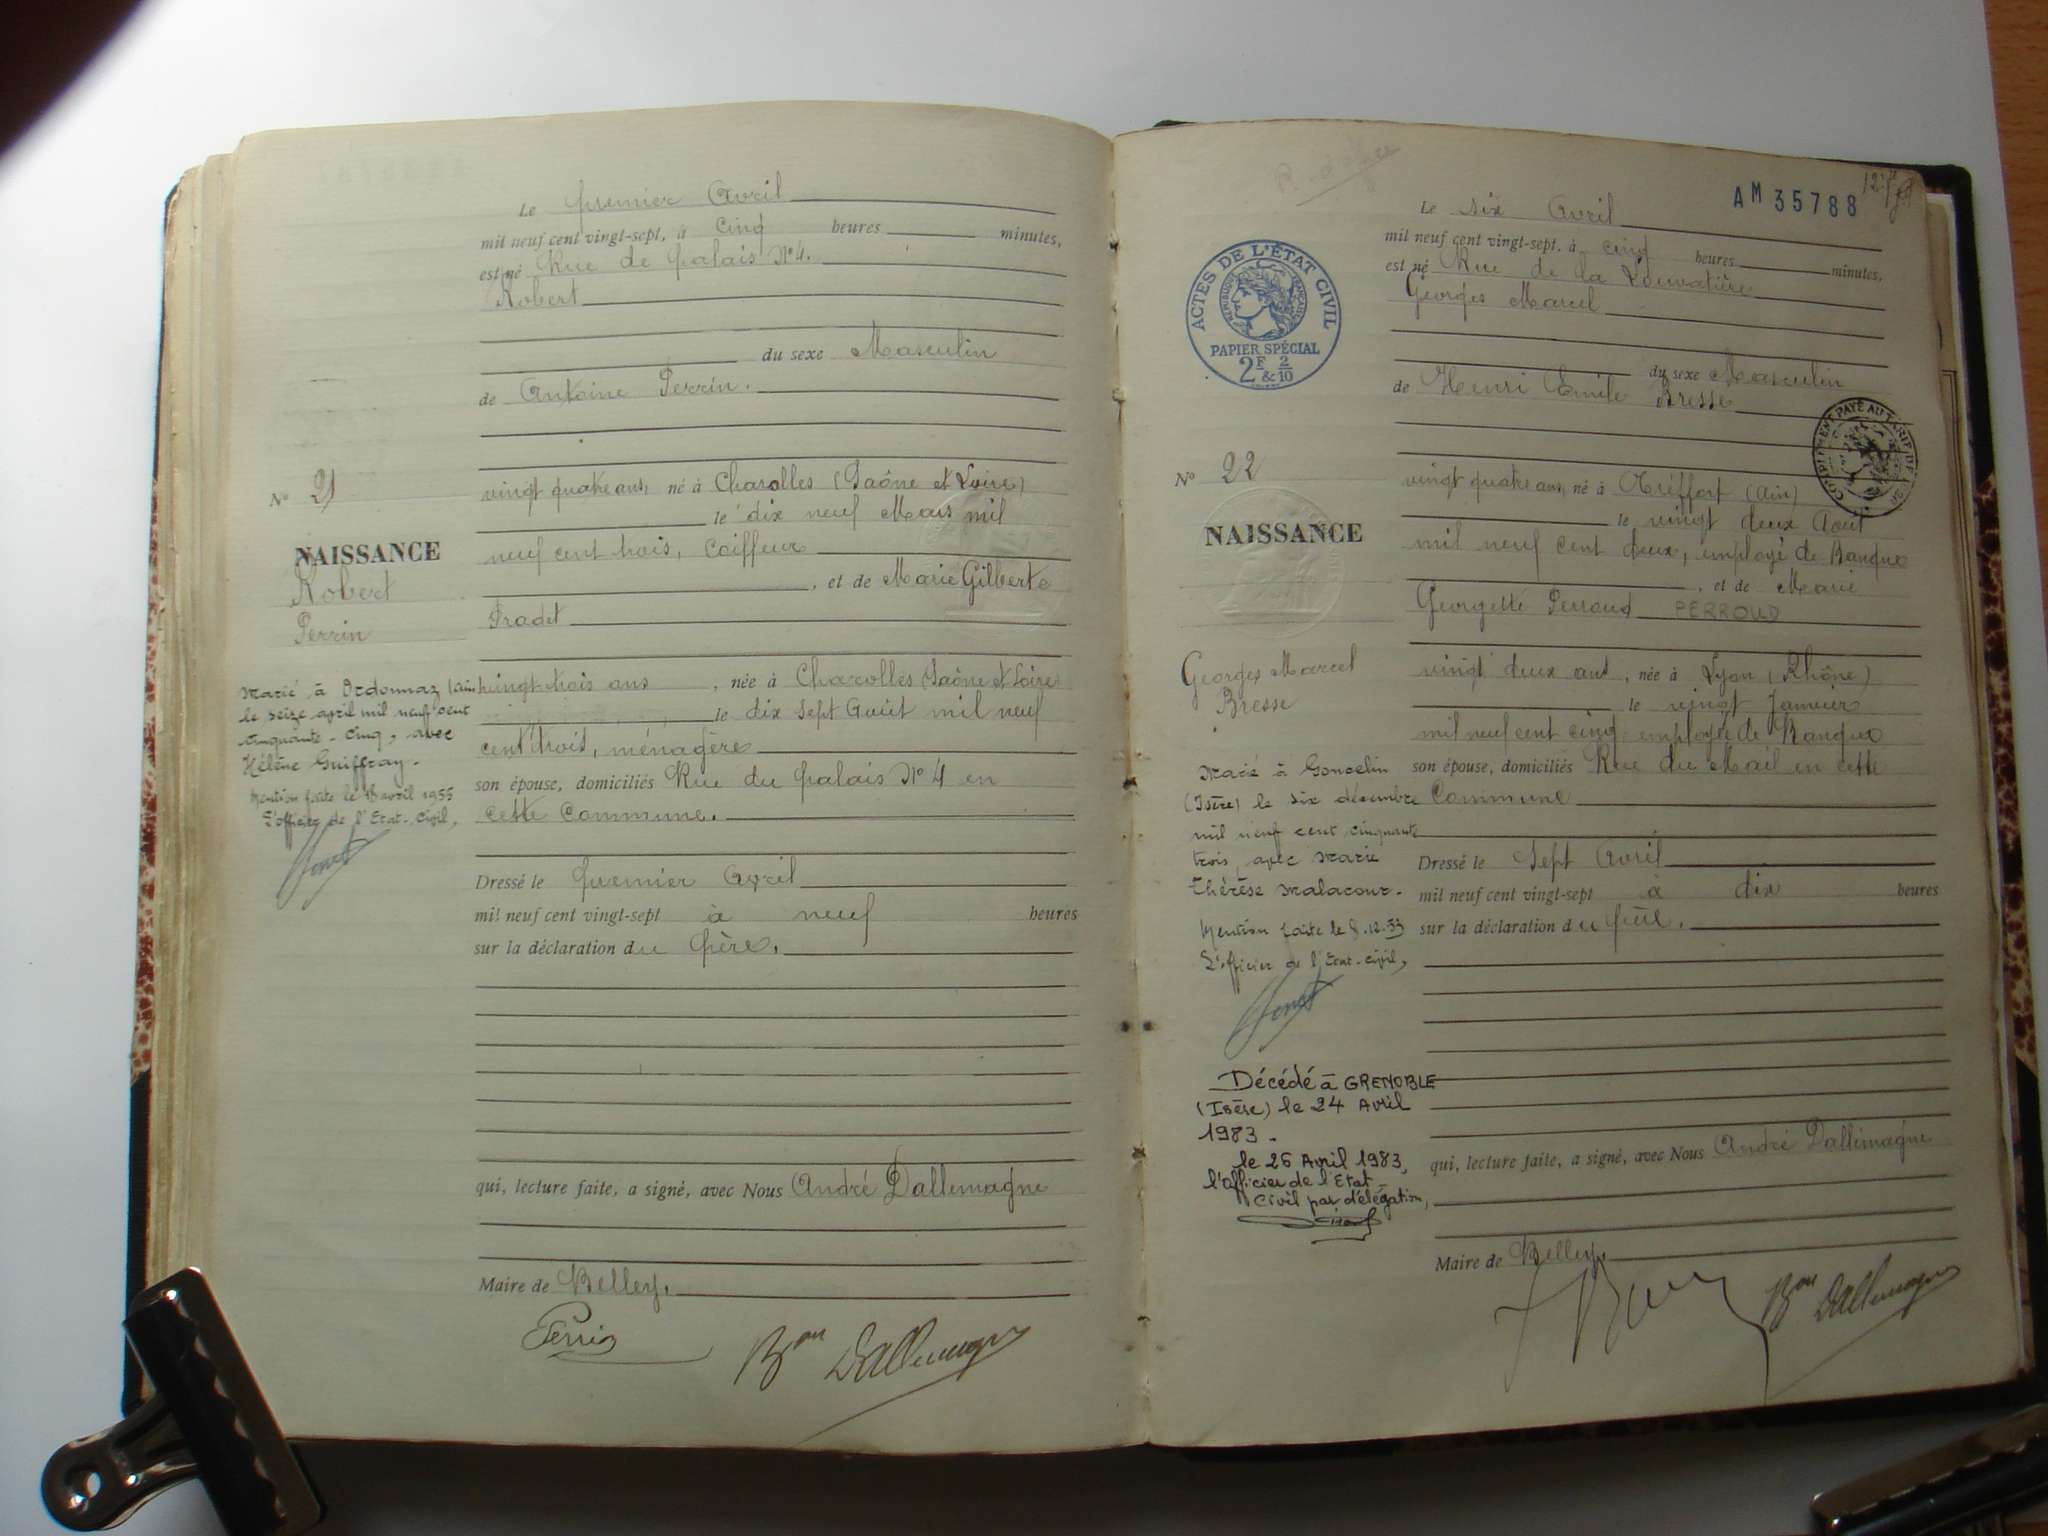 Le premier Avril
mil neuf cent vingt-sept, à cinq heures minutes,
est né Rue de palais N° 4.
Robert
du sexe Masculin
de Antoine Perrin.
N° 21
vingt quatre ans, né à Charolles (Saône et Loire)
le dix neuf Mars mil
NAISSANCE
neuf cent trois, Coiffeur
Robert
, et de Marie Gilberte
Perrin
Pradet
Marié à Ordonnaz (Ain)
le seize avril mil neuf cent
cinquante-cinq, avec
Hélène Guiffray.
Mention faite le 18 avril 1955
L'officier de l'Etat-Civil,
vingt trois ans, née à Charolles (Saône et Loire)
le dix sept Août mil neuf
cent trois, ménagère
son épouse, domiciliés Rue du palais N° 4 en
cette Commune.
Dressé le premier Avril
mil neuf cent vingt-sept à neuf heures
sur la déclaration du père.
qui, lecture faite, a signé, avec Nous André Dallemagne
Maire de Belley.
Perrin
Bon Dallemagne
AM 35788
Le six Avril
mil neuf cent vingt-sept. à cinq heures minutes,
est né Rue de la Louvatière
Georges Marcel
ACTES DE L'ÉTAT CIVIL
RÉPUBLIQUE FRANÇAISE
PAPIER SPÉCIAL
2F & 2/10
du sexe Masculin
de Henri Emile Bresse
COMPLÉMENT PAYÉ AU TARIF DE
N° 22
vingt quatre ans, né à Tréffort (Ain)
le vingt deux Août
NAISSANCE
mil neuf cent deux, employé de Banque
, et de Marie
Georgette Perraud PERROUD
Georges Marcel
Bresse
vingt deux ans, née à Lyon (Rhône)
le vingt Janvier
mil neuf cent cinq employée de Banque
son épouse, domiciliés Rue du Mail en cette
Commune
Marié à Goncelin
(Isère) le six décembre
mil neuf cent cinquante
trois, avec Marie
Thérèse Malacour.
Mention faite le 8.12.53
L'officier de l'Etat-civil,
Dressé le Sept Avril
mil neuf cent vingt-sept à dix heures
sur la déclaration du père.
Décédé à GRENOBLE
(Isère) le 24 Avril
1983 -
le 26 Avril 1983,
l'officier de l'Etat-
Civil par délégation,
qui, lecture faite, a signé, avec Nous André Dallemagne
Maire de Belley.
Bon Dallemagne